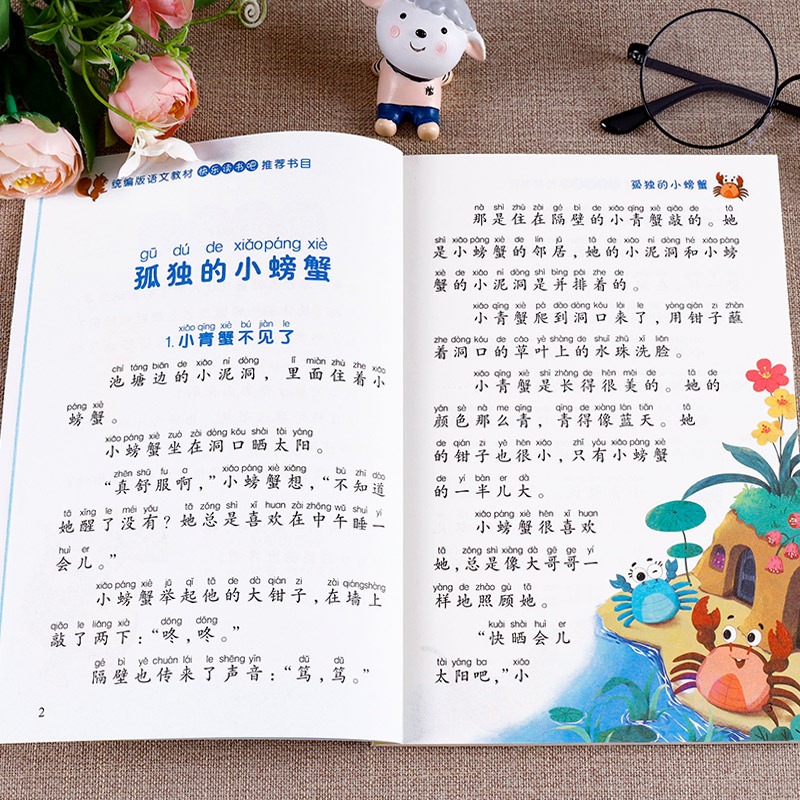 统编版语文教材 快乐读书吧 推荐书目
gū dú de xiǎo páng xiè
孤独的小螃蟹
xiǎo qīng xiè bú jiàn le
1.小青蟹不见了
chí táng biān de xiǎo ní dòng lǐ miàn zhù zhe xiǎo
池塘边的小泥洞，里面住着小
páng xiè
螃蟹。
xiǎo páng xiè zuò zài dòng kǒu shài tài yáng
小螃蟹坐在洞口晒太阳。
zhēn shū fu a xiǎo páng xiè xiǎng bù zhī dào
“真舒服啊，”小螃蟹想，“不知道
tā xǐng le méi yǒu tā zǒng shì xǐ huan zài zhōng wǔ shuì yí
她醒了没有？她总是喜欢在中午睡一
huì er
会儿。”
xiǎo páng xiè jǔ qǐ tā de dà qián zi zài qiáng shàng
小螃蟹举起他的大钳子，在墙上
qiāo le liǎng xià dōng dōng
敲了两下：“咚，咚。”
gé bì yě chuán lái le shēng yīn dǔ dǔ
隔壁也传来了声音：“笃，笃。”
2
孤独的小螃蟹
nà shì zhù zài gé bì de xiǎo qīng xiè qiāo de tā
那是住在隔壁的小青蟹敲的。她
shì xiǎo páng xiè de lín jū tā de xiǎo ní dòng hé xiǎo páng
是小螃蟹的邻居，她的小泥洞和小螃
xiè de xiǎo ní dòng shì bìng pái zhe de
蟹的小泥洞是并排着的。
xiǎo qīng xiè pá dào dòng kǒu lái le yòng qián zi zhàn
小青蟹爬到洞口来了，用钳子蘸
zhe dòng kǒu de cǎo yè shàng de shuǐ zhū xǐ liǎn
着洞口的草叶上的水珠洗脸。
xiǎo qīng xiè shì zhǎng de hěn měi de tā de
小青蟹是长得很美的。她的
yán sè nà me qīng qīng de xiàng lán tiān tā
颜色那么青，青得像蓝天。她
de qián zi yě hěn xiǎo zhǐ yǒu xiǎo páng xiè
的钳子也很小，只有小螃蟹
de yí bàn er dà
的一半儿大。
xiǎo páng xiè hěn xǐ huan
小螃蟹很喜欢
tā zǒng shì xiàng dà gē ge yí
她，总是像大哥哥一
yàng de zhào gù tā
样地照顾她。
kuài shài huì er
“快晒会儿
tài yáng ba xiǎo
太阳吧，”小